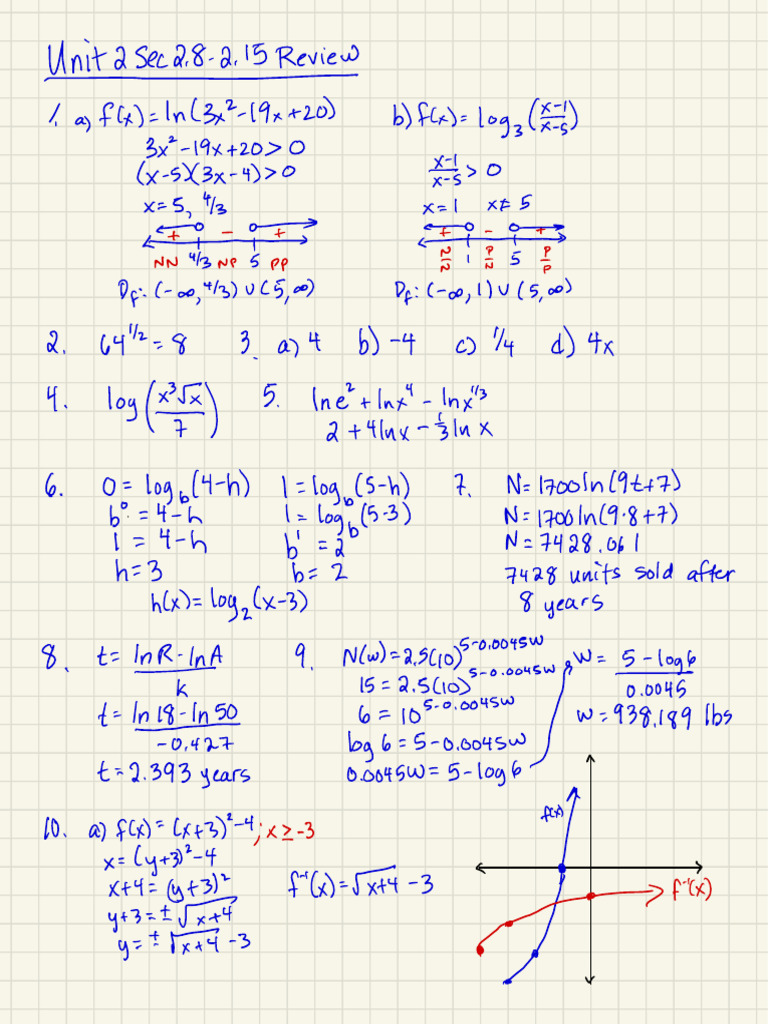 Unit 2 Sec 2.8-2.15 Review
1. a) f(x) = ln(3x² - 19x + 20)
3x² - 19x + 20 > 0
(x-5)(3x-4) > 0
x = 5, 4/3
+ - +
NN 4/3 NP 5 PP
D_f: (-∞, 4/3) ∪ (5, ∞)
b) f(x) = log₃((x-1)/(x-5))
(x-1)/(x-5) > 0
x = 1 x ≠ 5
+ - +
N/N 1 P/N 5 P/P
D_f: (-∞, 1) ∪ (5, ∞)
2. 64^(1/2) = 8
3. a) 4 b) -4 c) 1/4 d) 4x
4. log(x³√x / 7)
5. ln e² + ln x⁴ - ln x^(1/3)
2 + 4 ln x - 1/3 ln x
6. 0 = log_b(4-h)
b⁰ = 4-h
1 = 4-h
h = 3
1 = log_b(5-h)
1 = log_b(5-3)
b¹ = 2
b = 2
h(x) = log₂(x-3)
7. N = 1700 ln(9t+7)
N = 1700 ln(9·8+7)
N = 7428.061
7428 units sold after
8 years
8. t = (ln R - ln A)/k
t = (ln 18 - ln 50)/(-0.427)
t = 2.393 years
9. N(w) = 2.5(10)^(5-0.0045w)
15 = 2.5(10)^(5-0.0045w)
6 = 10^(5-0.0045w)
log 6 = 5 - 0.0045w
0.0045w = 5 - log 6
w = (5 - log 6)/0.0045
w = 938.189 lbs
10. a) f(x) = (x+3)² - 4; x ≥ -3
x = (y+3)² - 4
x+4 = (y+3)²
y+3 = ±√(x+4)
y = ±√(x+4) - 3
f⁻¹(x) = √(x+4) - 3
f(x)
f⁻¹(x)